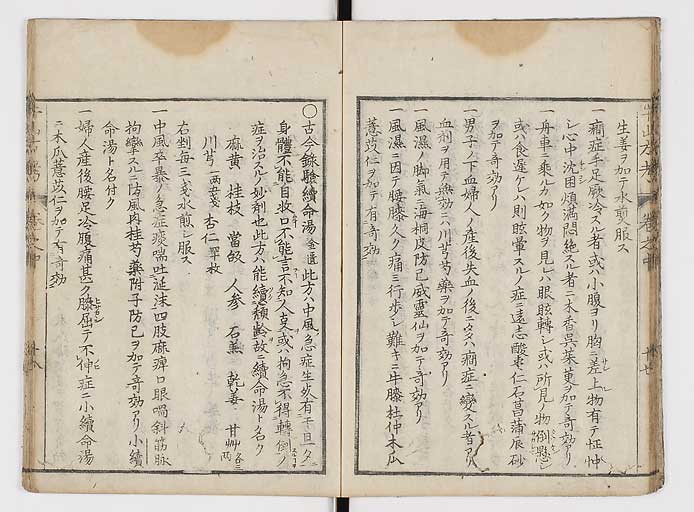 生姜ヲ加テ水煎メ服ス
一癇症手足厥冷スル者或ハ小腹ヨリ胸ニ差上物有テ怔忡
シ心中沈困煩満悶絶スル者ニ木香呉茱萸ヲ加テ奇効アリ
一舟車ニ乗ルカ如ク物ヲ見レハ眼眩轉シ或ハ所見ノ物倒懸シ
或ハ食遅ケレハ則眩暈スルノ症ニ遠志酸棗仁石菖蒲辰砂
ヲ加テ奇効アリ
一男子ノ下血婦人ノ産後失血ノ後ニ
癇症ニ變スル者アリ
血剤ヲ用テ無効ニハ川芎芍薬ヲ加テ奇効アリ
一風濕ノ脚氣ニ海桐皮防已威靈仙ヲ加テ奇効アリ
一風濕ニ因テ腰膝久ク痛ミ行歩シ難キニ牛膝杜仲木瓜
薏苡仁ヲ加テ有奇効
○古今録驗續命湯 金匱 此方ハ中風急症生
身體不能自收口不能言不知人
或ハ拘急不得轉倒ノ
症ヲ治スルノ妙剤也此方ハ能續頽齢故ニ續命湯ト名ク
麻黄 桂枝 當皈 人参 石羔 乾姜 甘艸 各三両
川芎 一両五戔 杏仁 四十枚
右剉毎三戔水煎シ服ス
一中風卒暴ノ急症痰喘吐涎沫四肢麻痺口眼喎斜筋脉
拘攣スルニ防風肉桂芍藥附子防已ヲ加テ奇効アリ小續
命湯ト名付ク
一婦人産後腰足冷腹痛甚ク膝屈テ不伸症ニ小續命湯
ニ木瓜薏苡仁ヲ加テ有奇効